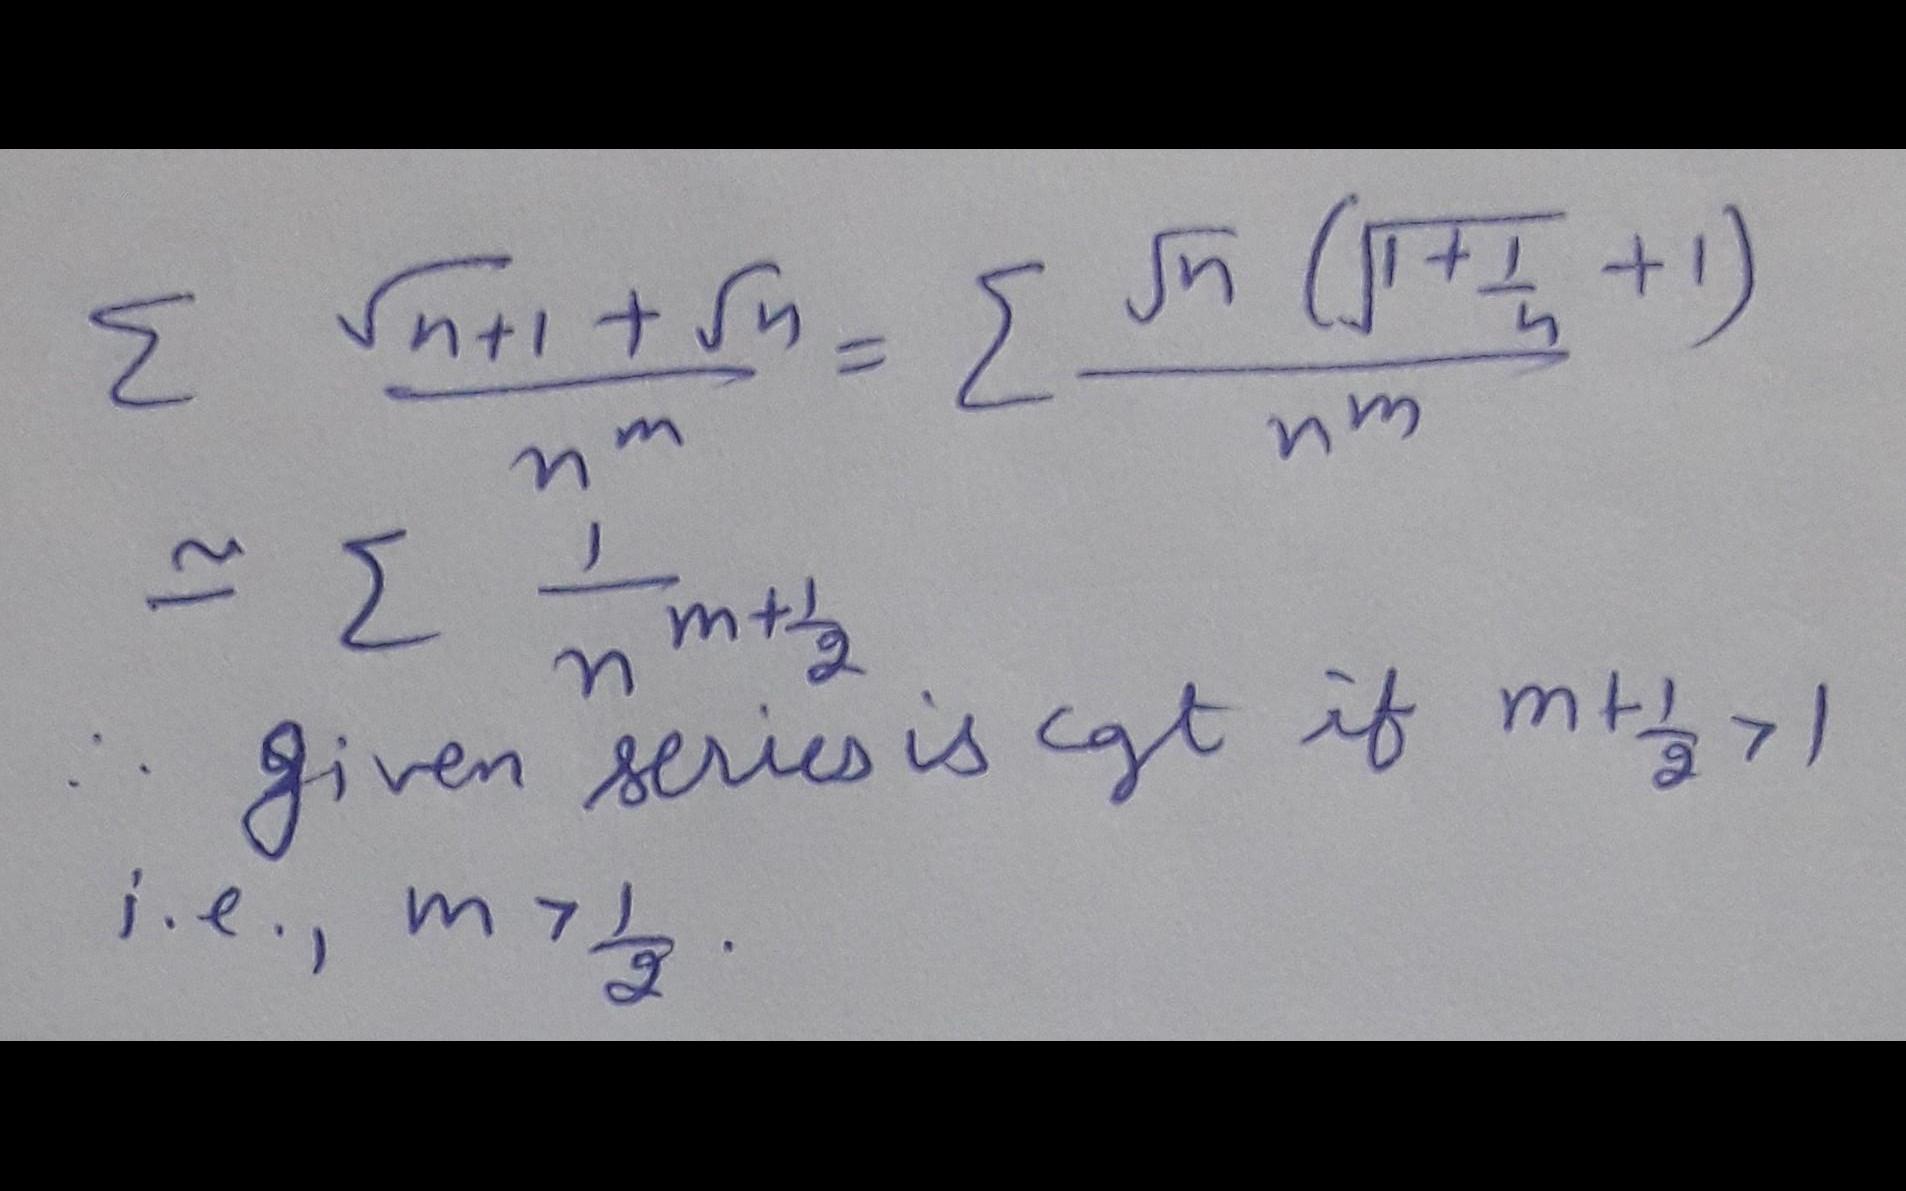 Σ (√(n+1) + √n) / n^m = Σ √n (√(1 + 1/n) + 1) / n^m
≅ Σ 1 / n^(m + 1/2)
∴ given series is cgt if m + 1/2 > 1
i.e., m > 1/2.